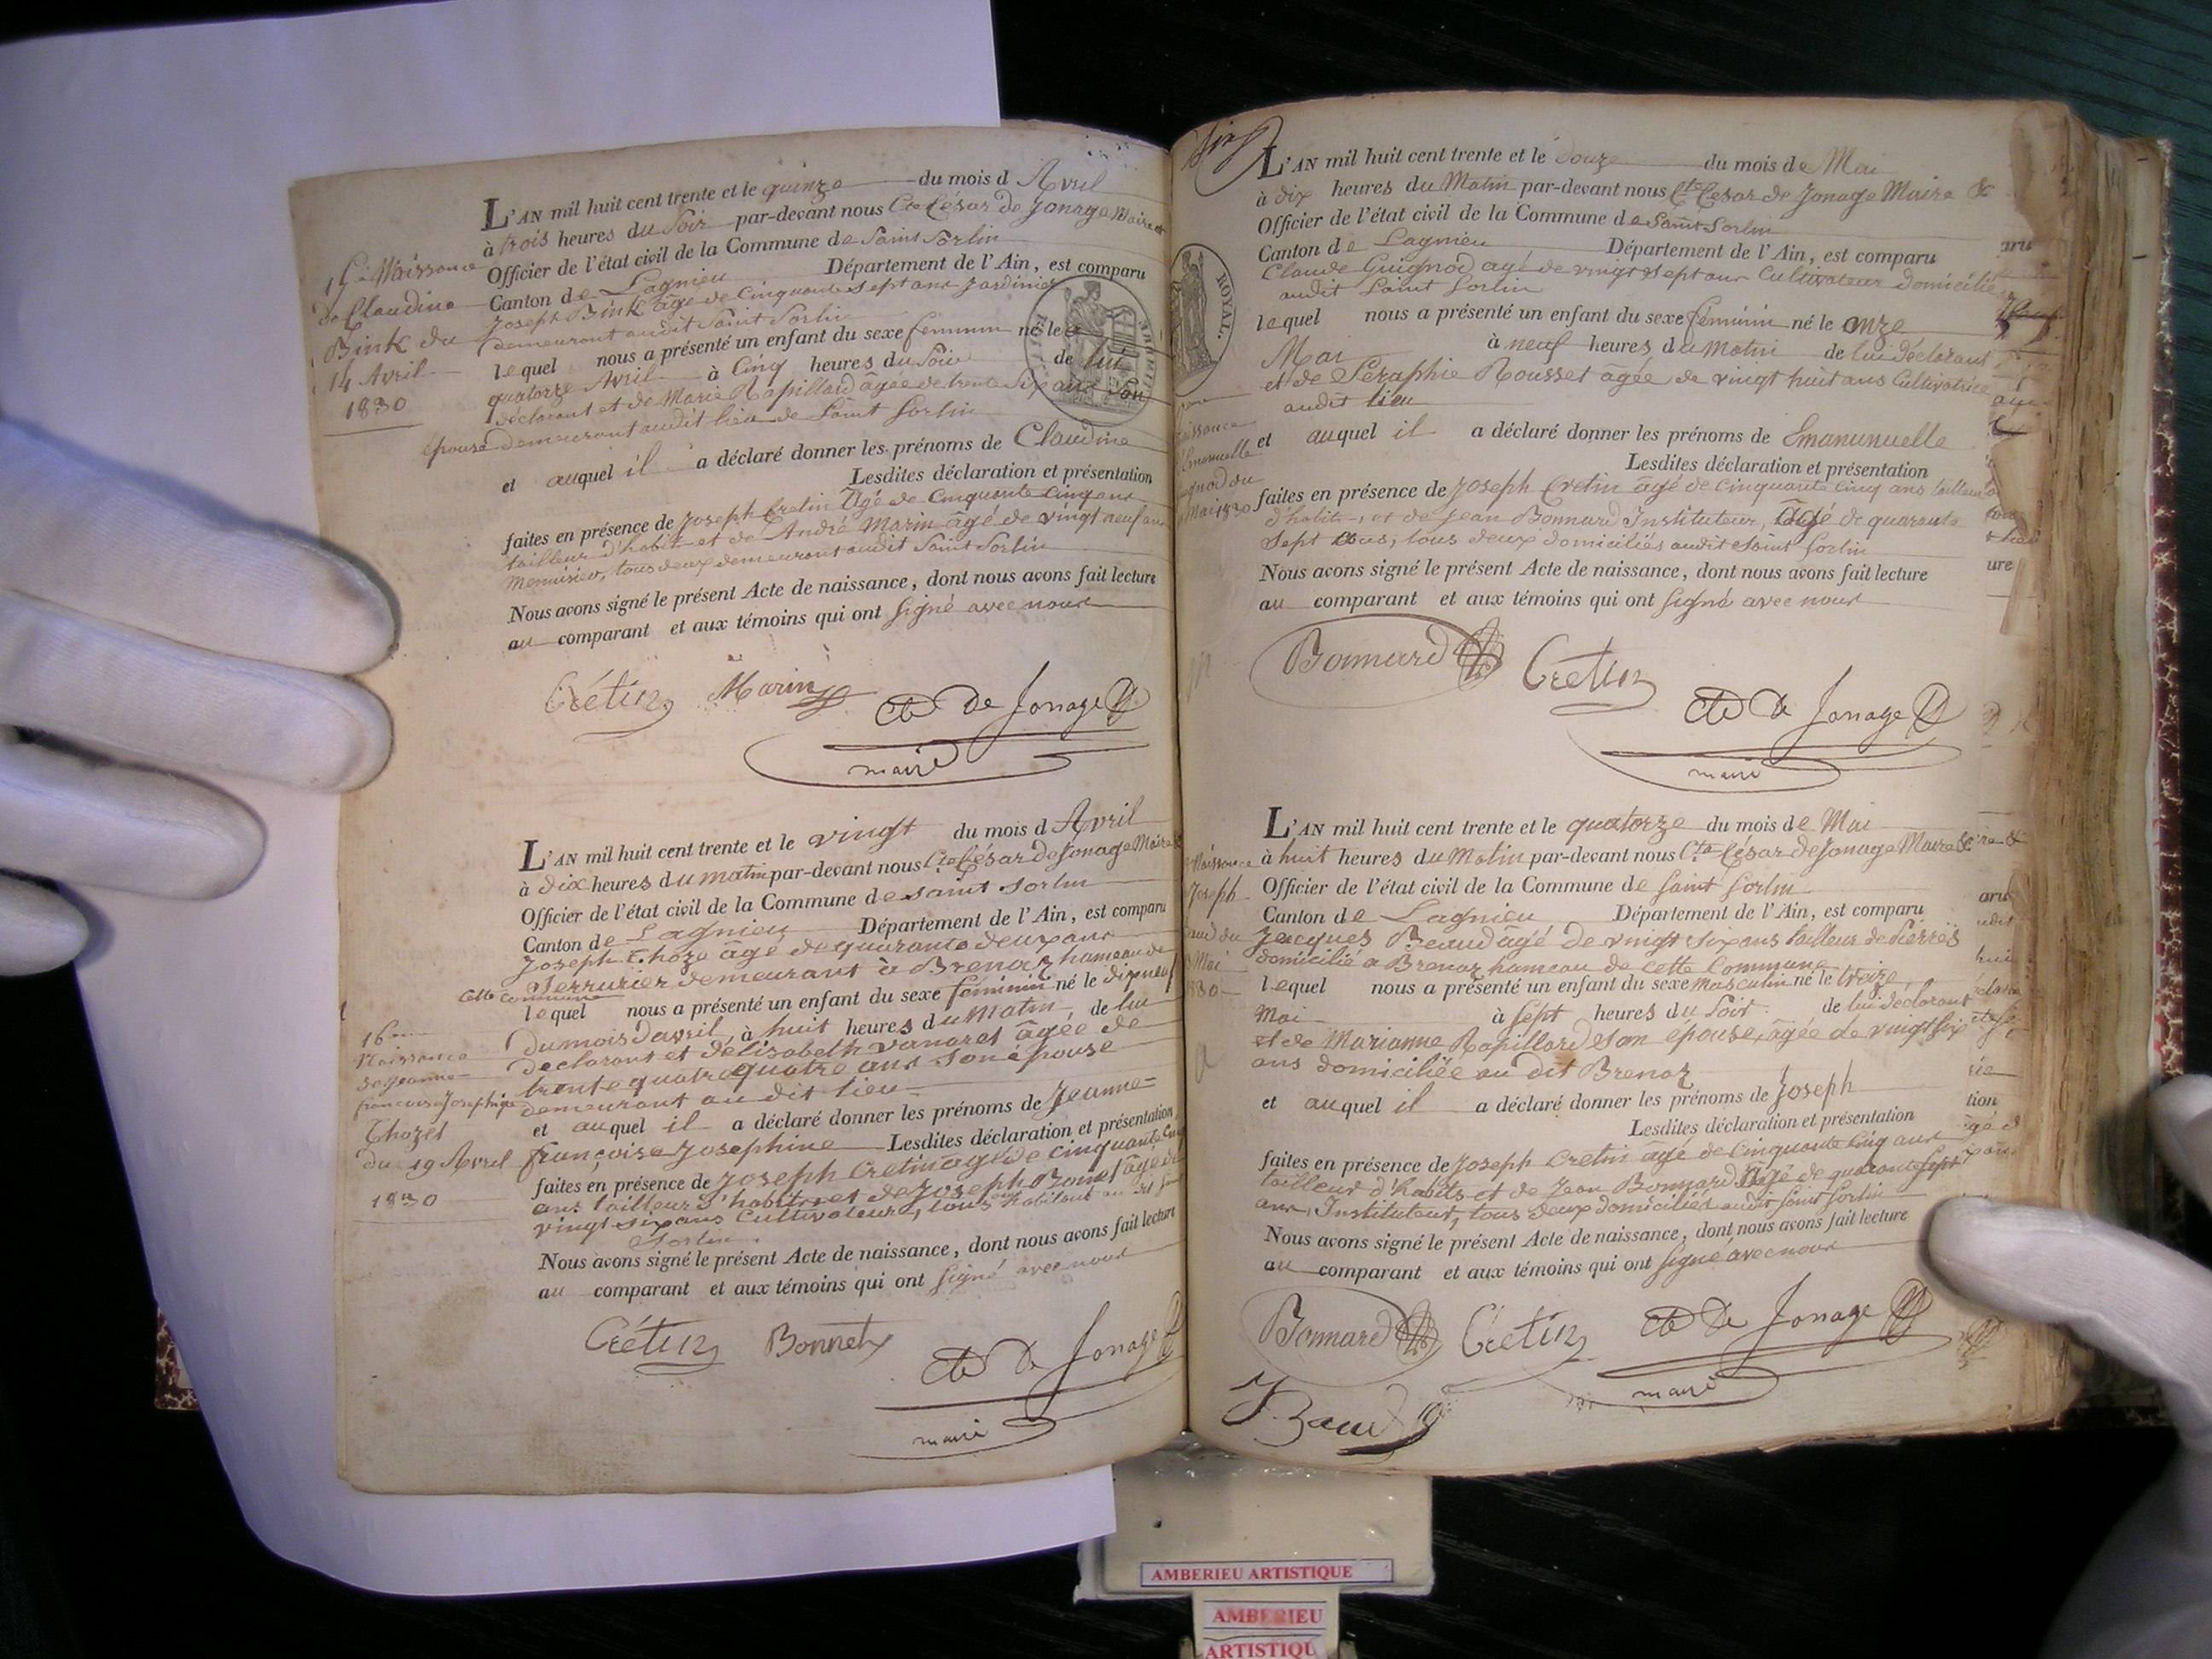 L'AN mil huit cent trente et le quinze du mois d Avril
à trois heures du Soir par-devant nous Cte César de Jonage Maire et
Officier de l'état civil de la Commune de Saint Sorlin
Canton de Lagnieu Département de l'Ain, est comparu
Joseph Bink âgé de cinquante sept ans Jardinier
demeurant audit Saint Sorlin
lequel nous a présenté un enfant du sexe feminin né le
quatorze Avril à Cinq heures du Soir de lui
déclarant et de Marie Rapillard âgée de trente six ans Son
épouse demeurant audit lieu de Saint Sorlin
et auquel il a déclaré donner les prénoms de Claudine
Lesdites déclaration et présentation
faites en présence de Joseph Cretin Agé de Cinquante Cinq ans
tailleur d'habits et de André Marin âgé de vingt neuf ans
Menuisier, tous deux demeurant audit Saint Sorlin
Nous avons signé le présent Acte de naissance, dont nous avons fait lecture
au comparant et aux témoins qui ont Signé avec nous
Naissance
de Claudine
Bink du
14 Avril
1830
Crétin Marin Cte De Jonage
maire
L'AN mil huit cent trente et le vingt du mois d Avril
à Dix heures du matin par-devant nous Cte César de Jonage Maire
Officier de l'état civil de la Commune de saint Sorlin
Canton de Lagnieu Département de l'Ain, est comparu
Joseph Thozet âgé de quarante deux ans
Serrurier demeurant à Brenaz hameau de
cette commune
lequel nous a présenté un enfant du sexe féminin né le dix neuf
du mois d'avril à huit heures du Matin de lui
declarant et d'élisabeth vanaret âgée de
trente quatre ans son épouse
demeurant au dit lieu
et auquel il a déclaré donner les prénoms de Jeanne
françoise Josephine Lesdites déclaration et présentation
faites en présence de Joseph Cretin âgé de cinquante cinq
ans tailleur d'habits et de Joseph Bonnet âgé de
vingt six ans Cultivateur, tous habitant au dit
Sorlin
Nous avons signé le présent Acte de naissance, dont nous avons fait lecture
au comparant et aux témoins qui ont Signé avec nous
16me
Naissance
de Jeanne
françoise Josephine
Thozet
du 19 Avril
1830
Crétin Bonnet Cte De Jonage
maire
L'AN mil huit cent trente et le douze du mois de Mai
à dix heures du Matin par-devant nous Cte César de Jonage Maire &
Officier de l'état civil de la Commune de Saint Sorlin
Canton de Lagnieu Département de l'Ain, est comparu
Claude Guignod agé de vingt sept ans Cultivateur domicilié
audit Saint Sorlin
lequel nous a présenté un enfant du sexe féminin né le onze
Mai à neuf heures du Matin de lui déclarant
et de Séraphie Rousset âgée de vingt huit ans Cultivatrice
audit lieu
et auquel il a déclaré donner les prénoms de Emanunuelle
Lesdites déclaration et présentation
faites en présence de Joseph Cretin âgé de cinquante cinq ans tailleur
d'habits, et de Jean Bonnard Instituteur, âgé de quarante
Sept ans, tous deux domiciliés audit Saint Sorlin
Nous avons signé le présent Acte de naissance, dont nous avons fait lecture
au comparant et aux témoins qui ont Signé avec nous
ROYAL.
Bonnard Cretin Cte De Jonage
maire
L'AN mil huit cent trente et le quatorze du mois de Mai
à huit heures du Matin par-devant nous Cte César de Jonage Maire &
Officier de l'état civil de la Commune de Saint Sorlin
Canton de Lagnieu Département de l'Ain, est comparu
Jacques Beaud âgé de vingt six ans tailleur de Pierres
domicilié a Brenaz hameau de cette Commune
lequel nous a présenté un enfant du sexe masculin né le treize
Mai à Sept heures du Soir de lui déclarant
et de Marianne Rapillard son épouse, âgée de vingt six
ans domiciliée au dit Brenaz
et auquel il a déclaré donner les prénoms de Joseph
Lesdites déclaration et présentation
faites en présence de Joseph Cretin âgé de Cinquante Cinq ans
tailleur d'habits et de Jean Bonnard Agé de quarante Sept
ans, Instituteur, tous deux domiciliés audit Saint Sorlin
Nous avons signé le présent Acte de naissance, dont nous avons fait lecture
au comparant et aux témoins qui ont Signé avec nous
Naissance
Joseph
Bonnard Cretin Cte De Jonage
maire
AMBERIEU ARTISTIQUE
AMBERIEU
ARTISTIQU